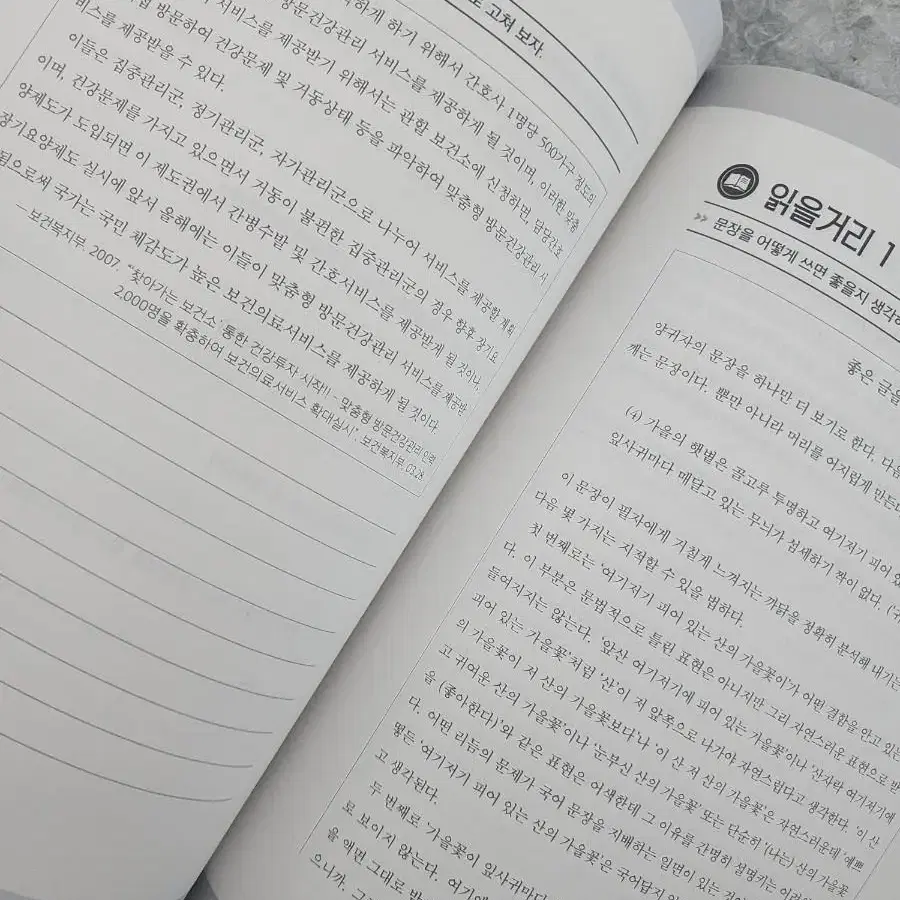 로 고쳐 보자.
하게 하기 위해서 간호사 1명당 500가구 정도의
방문건강관리 서비스를 제공하게 될 것이며, 이러한 맞춤
서비스를 제공받기 위해서는 관할 보건소에 신청하면, 담당간호
방문하여 건강문제 및 거동상태 등을 파악하여 맞춤형 방문건강관리 서
비스를 제공받을 수 있다.
이들은 집중관리군, 정기관리군, 자기관리군으로 나누어 서비스를 제공할 계획
이며, 건강문제를 가지고 있으면서 거동이 불편한 집중관리군의 경우 향후 장기요
양제도가 도입되면 이 제도권에서 간병수발 및 간호서비스를 제공받게 될 것이나,
장기요양제도 실시에 앞서 올해에는 이들이 맞춤형 방문건강관리 서비스를 제공받
됨으로써 국가는 국민 체감도가 높은 보건의료서비스를 제공하게 될 것이다.
―보건복지부. 2007. “‘찾아가는 보건소’ 통한 건강투자 시작!! - 맞춤형 방문건강관리 인력
2,000명을 확충하여 보건의료서비스 확대실시”. 보건복지부. 03.28.
읽을거리 1
» 문장을 어떻게 쓰면 좋을지 생각하
좋은 글을
양귀자의 문장을 하나만 더 보기로 한다. 다음
께는 문장이다. 뿐만 아니라 머리를 어지럽게 만든다
(4) 가을의 햇볕은 골고루 투명하고 여기저기 피어 있
잎사귀마다 매달고 있는 무늬가 섬세하기 짝이 없다. (귀
이 문장이 필자에게 거칠게 느껴지는 까닭을 정확히 분석해 내기는
다음 몇 가지는 지적할 수 있을 법하다.
첫 번째로는 ‘여기저기 피어 있는 산의 가을꽃이’가 어떤 결함을 안고 있는
다. 이 부분은 문법적으로 틀린 표현은 아니지만 그리 자연스러운 표현으로 받
들여지지는 않는다. ‘앞산 여기저기에 피어 있는 가을꽃’이나 ‘산자락 여기저기에
피어 있는 가을꽃’처럼 ‘산’이 저 앞쪽으로 나가야 자연스럽다고 생각한다. ‘이 산
의 가을꽃이 저 산의 가을꽃보다’나 ‘이 산 저 산의 가을꽃’은 자연스러운데 ‘예쁘
고 귀여운 산의 가을꽃’이나 ‘눈부신 산의 가을꽃’ 또는 단순히 ‘(나는) 산의 가을꽃
을 (좋아한다)’와 같은 표현은 어색한데 그 이유를 간명히 설명키는
다. 어떤 리듬의 문제가 국어 문장을 지배하는 일면이 있는
떻든 ‘여기저기 피어 있는 산의 가을꽃’은 국어답지
고 생각된다.
두 번째로 ‘가을꽃이 잎사귀마다
로 보이지 않는다. 여기에
을 액면 그대로 받
으니까. 그